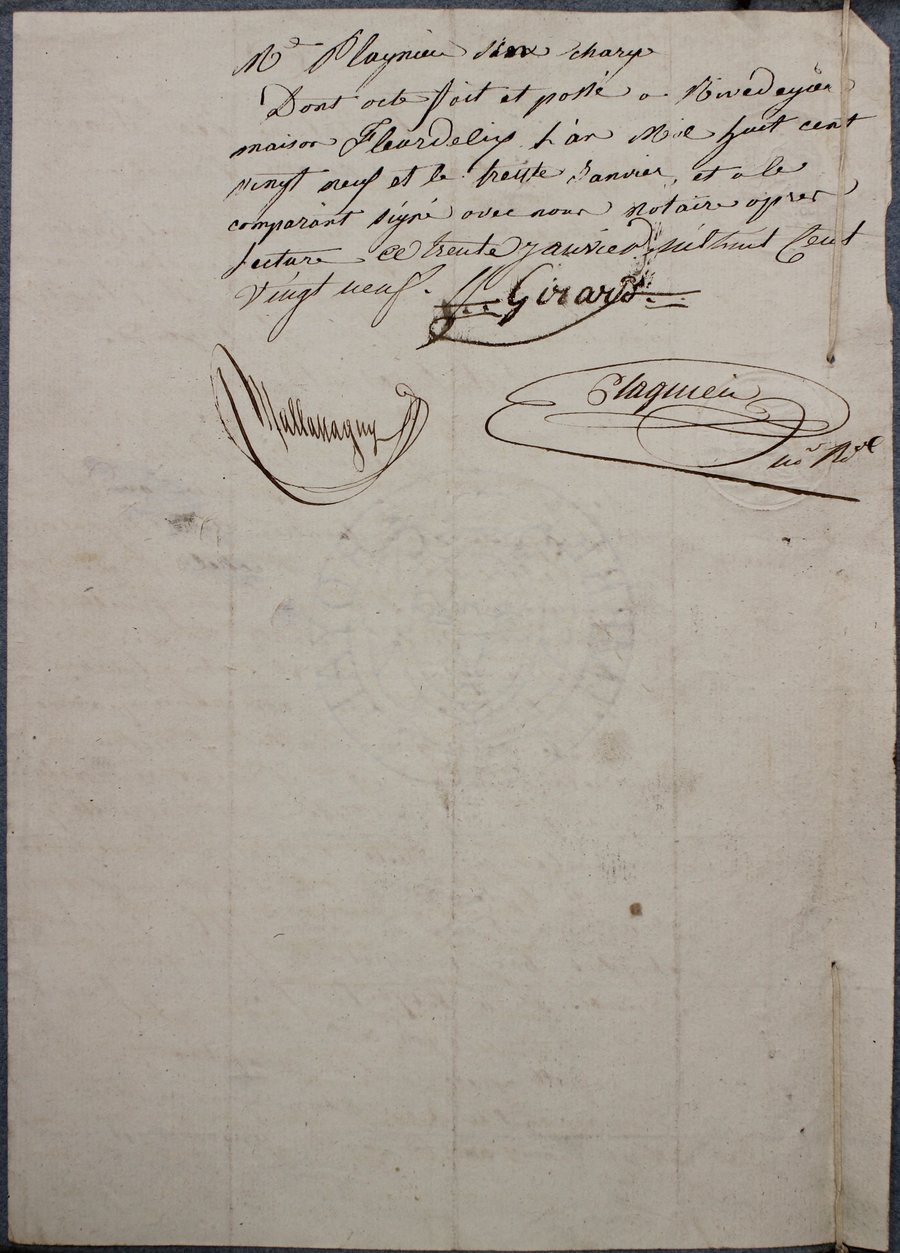 Me Plagnieu s'en charge
Dont acte fait et passé a Rivedegier
maison Fleurdelix L'an Mil huit cent
vingt neuf et le trente Janvier, et a le
comparant signé avec nous notaire apres
lecture ce trente janvier mil huit Cent
Vingt neuf.
Girard
Plagnieu
no.re R.al